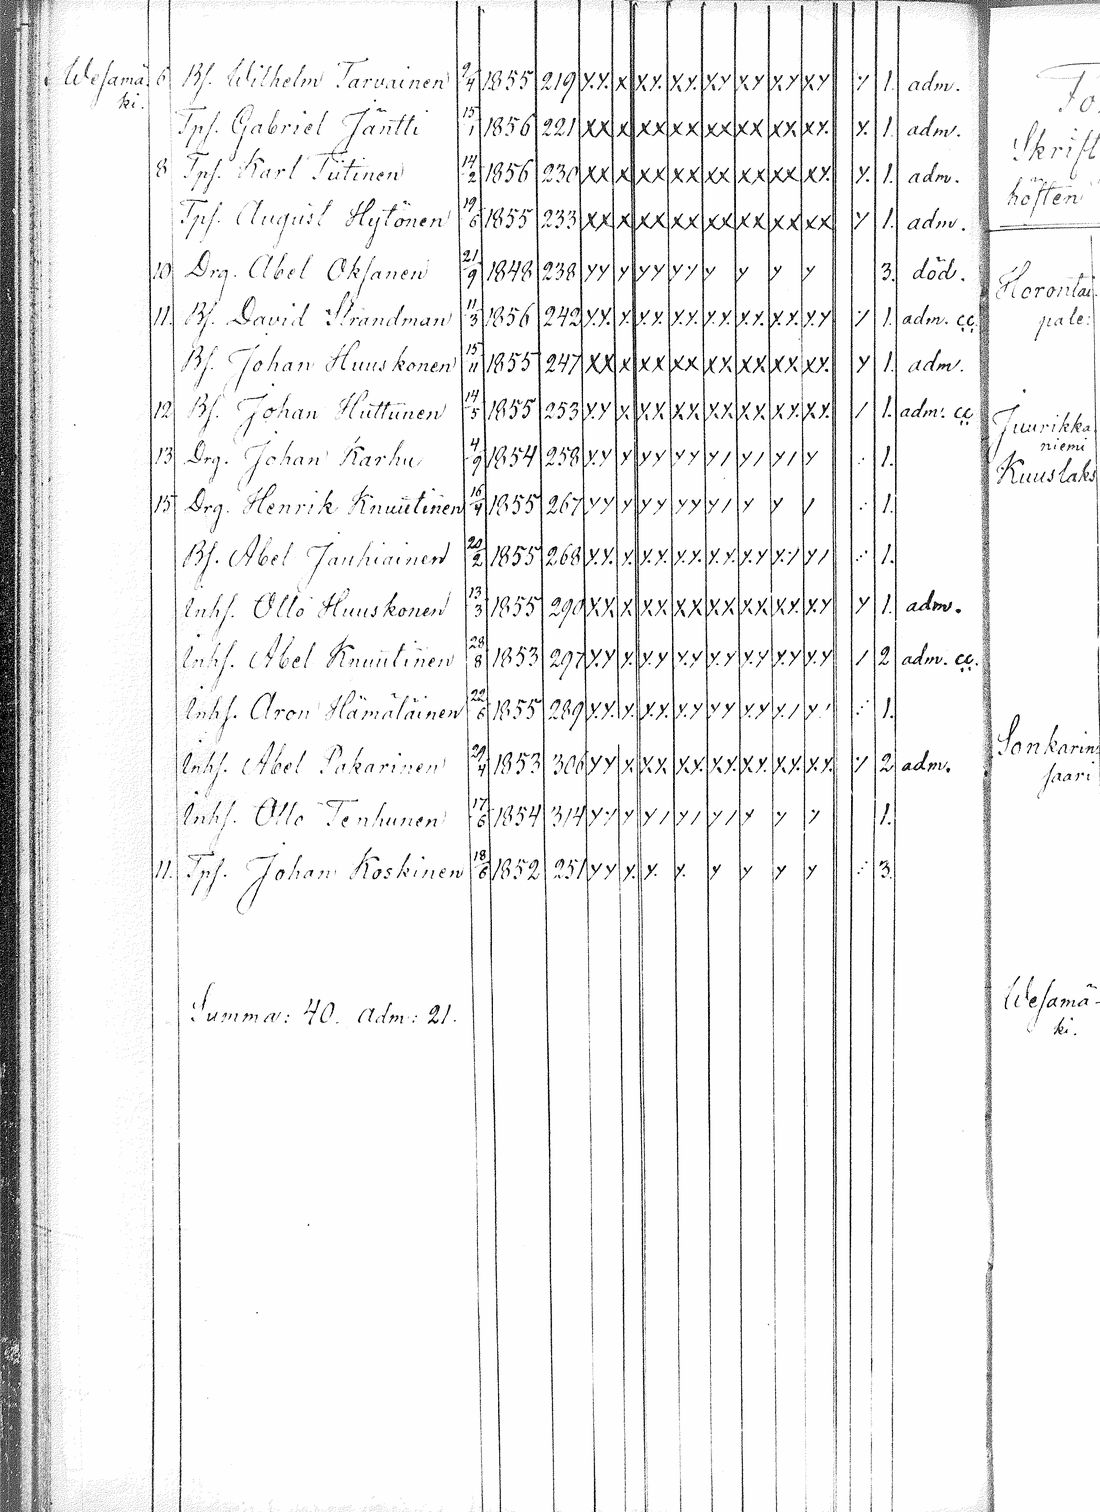 Wesamä- 6 Bs. Wilhelm Tarvainen 9/4 1855 219 y.y. x x.y. x.y. x y x y x y x y y 1. adm.
ki.
Tps. Gabriel Jäntti 15/1 1856 221 xx x xx xx xx xx xx xy. y. 1. adm.
8 Tps. Karl Tiitinen 14/2 1856 230 xx x xx xx xx xx xx xy. y. 1. adm.
Tps. August Hytönen 19/6 1855 233 xx x xx xx xx xx xx xx y 1. adm.
10 Drg. Abel Oksanen 21/9 1848 238 yy y yy yy y y y y 3. död.
11. Bs. David Strandman 11/3 1856 242 y.y. x y.y. y.y. y.y. y.y. y.y. y.y y 1. adm. cc.
Bs. Johan Huuskonen 15/11 1855 247 xx x xx xx xx xx xx xy. y 1. adm.
12 Bs. Johan Huttunen 14/5 1855 253 y.y x xx xx xx xx x.y. x.y. / 1. adm. cc.
13 Drg. Johan Karhu 4/9 1854 258 y.y x yy yy y/ y/ y/ y 1.
15 Drg. Henrik Knuutinen 16/4 1855 267 yy y yy yy y/ y y / 1.
Bs. Abel Jauhiainen 20/2 1855 268 y.y. y. y.y. y.y. y.y. y.y y./ y/ 1.
Inhs. Otto Huuskonen 13/3 1855 290 x.x. x xx xx xx xx x.y. x.y y 1. adm.
Inhs. Abel Knuutinen 28/8 1853 297 y.y y. y.y y.y y.y y.y y.y y.y / 2 adm. cc.
Inhs. Aron Hämäläinen 22/6 1855 289 y.y. y. y.y. y.y yy y.y y./ y/ 1.
Inhs. Abel Pakarinen 29/4 1853 306 yy x xx xx. x.y. x.y. x.y. x.y. y 2 adm.
Inhs. Otto Tenhunen 17/6 1854 314 y/ y y/ y/ y/ y y y 1.
11. Tps. Johan Koskinen 18/6 1852 251 yy y. y. y. y y y y 3.
Summa: 40. Adm: 21.
Skrift
höften
Horontai-
pale:
Juurikka
niemi
Kuuslaks
Sonkarin
saari
Wesamä-
ki.